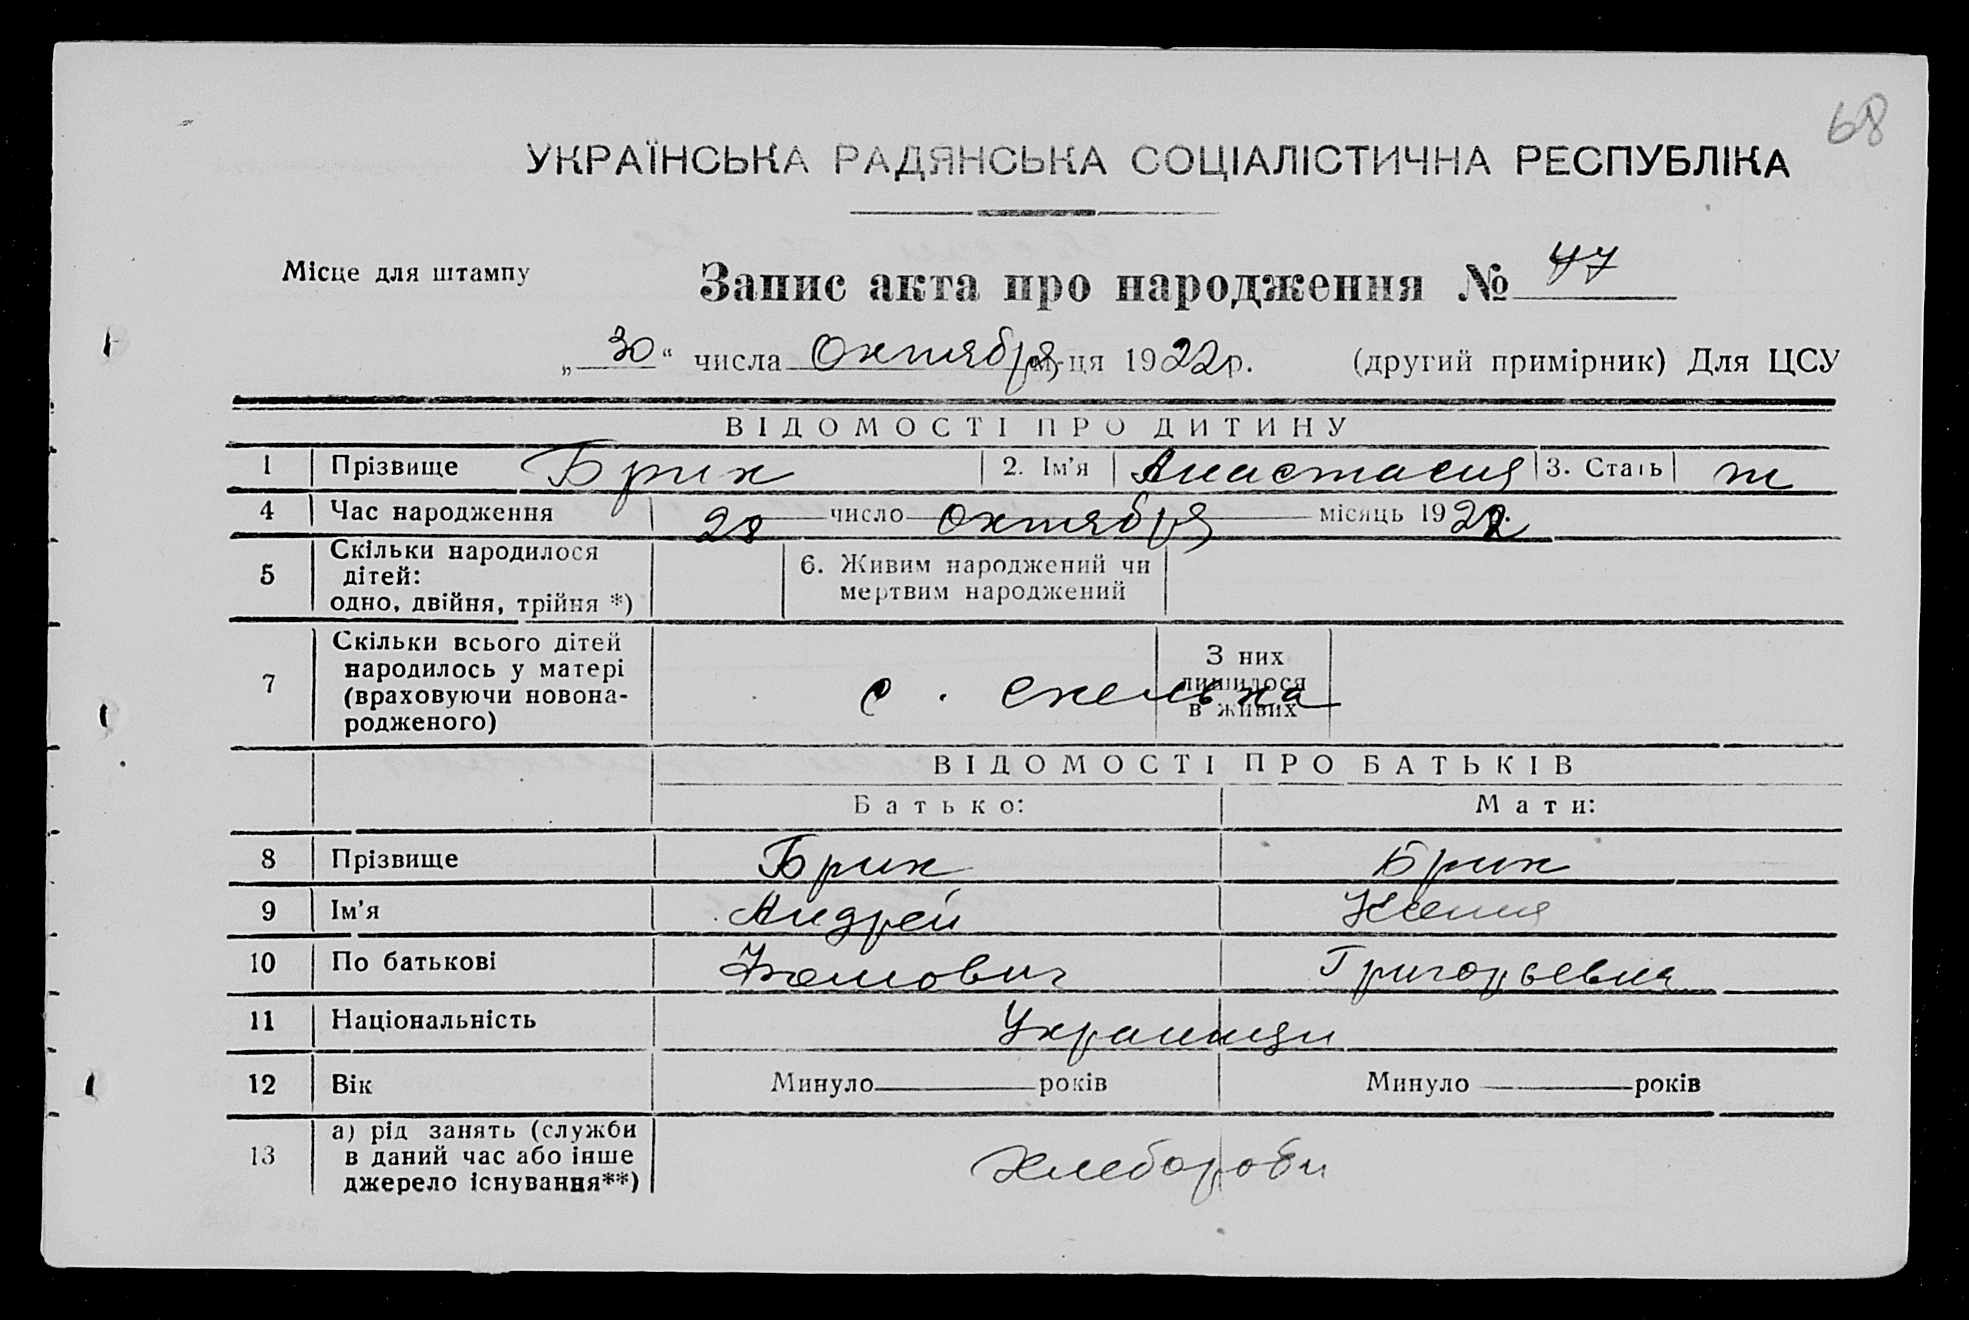 68
УКРАЇНСЬКА РАДЯНСЬКА СОЦІАЛІСТИЧНА РЕСПУБЛІКА
Місце для штампу
Запис акта про народження № 47
„30“ числа Октября м-ця 1922р. (другий примірник) Для ЦСУ
ВІДОМОСТІ ПРО ДИТИНУ
1 Прізвище Брик 2. Ім'я Анастасия 3. Стать ж
4 Час народження 28 число Октября місяць 1922.
5 Скільки народилося дітей: одно, двійня, трійня *) 6. Живим народжений чи мертвим народжений
7 Скільки всього дітей народилось у матері (враховуючи новонародженого) с. Скелька З них лишилося в живих
ВІДОМОСТІ ПРО БАТЬКІВ
Батько: Мати:
8 Прізвище Брик Брик
9 Ім'я Андрей Ксения
10 По батькові Григорьевна
11 Національність Украинцы
12 Вік Минуло років Минуло років
13 а) рід занять (служби в даний час або інше джерело існування**) Хлеборобы